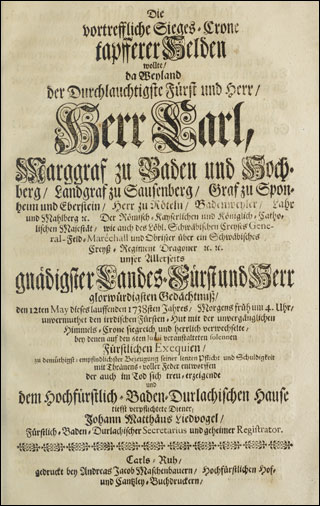 Die
vortreffliche Sieges-Crone
tapfferer Helden
wollte/
da Weyland
der Durchlauchtigste Fürst und Herr/
Herr Carl,
Marggraf zu Baden und Hoch-
berg/ Landgraf zu Sausenberg/ Graf zu Spon-
heim und Eberstein/ Herr zu Röteln/ Badenweyler/ Lahr
und Mahlberg ꝛc. Der Römisch-Kayserlichen und Königlich-Catho-
lischen Majestät/ wie auch des Löbl. Schwäbischen Creyses Gene-
ral-Feld-Maréchall und Obrister über ein Schwäbisches
Creyß-Regiment Dragoner ꝛc. ꝛc.
unser Allerseits
gnädigster Landes-Fürst und Herr
glorwürdigsten Gedächtnuß/
den 12ten May dieses lauffenden 1738sten Jahres/ Morgens früh um 4. Uhr/
unvermuthet den irrdischen Fürsten-Hut mit der unvergänglichen
Himmels-Crone siegreich und herrlich verwechselte/
bey denen auf den veranstalteten solennen
Fürstlichen Exequien/
zu demüthigst-empfindlichster Bezeugung seiner letzten Pflicht und Schuldigkeit
mit Thränens-voller Feder entwerffen
der auch im Tod sich treu-erzeigende
und
dem Hochfürstlich-Baden-Durlachischen Hause
tieffst verpflichtete Diener/
Johann Matthäus Liedvogel/
Fürstlich-Baden-Durlachischer Secretarius und geheimer Registrator.
Carls-Ruh/
gedruckt bey Andreas Jacob Maschenbauern/ Hochfürstlichen Hof-
und Cantzley-Buchdruckern/